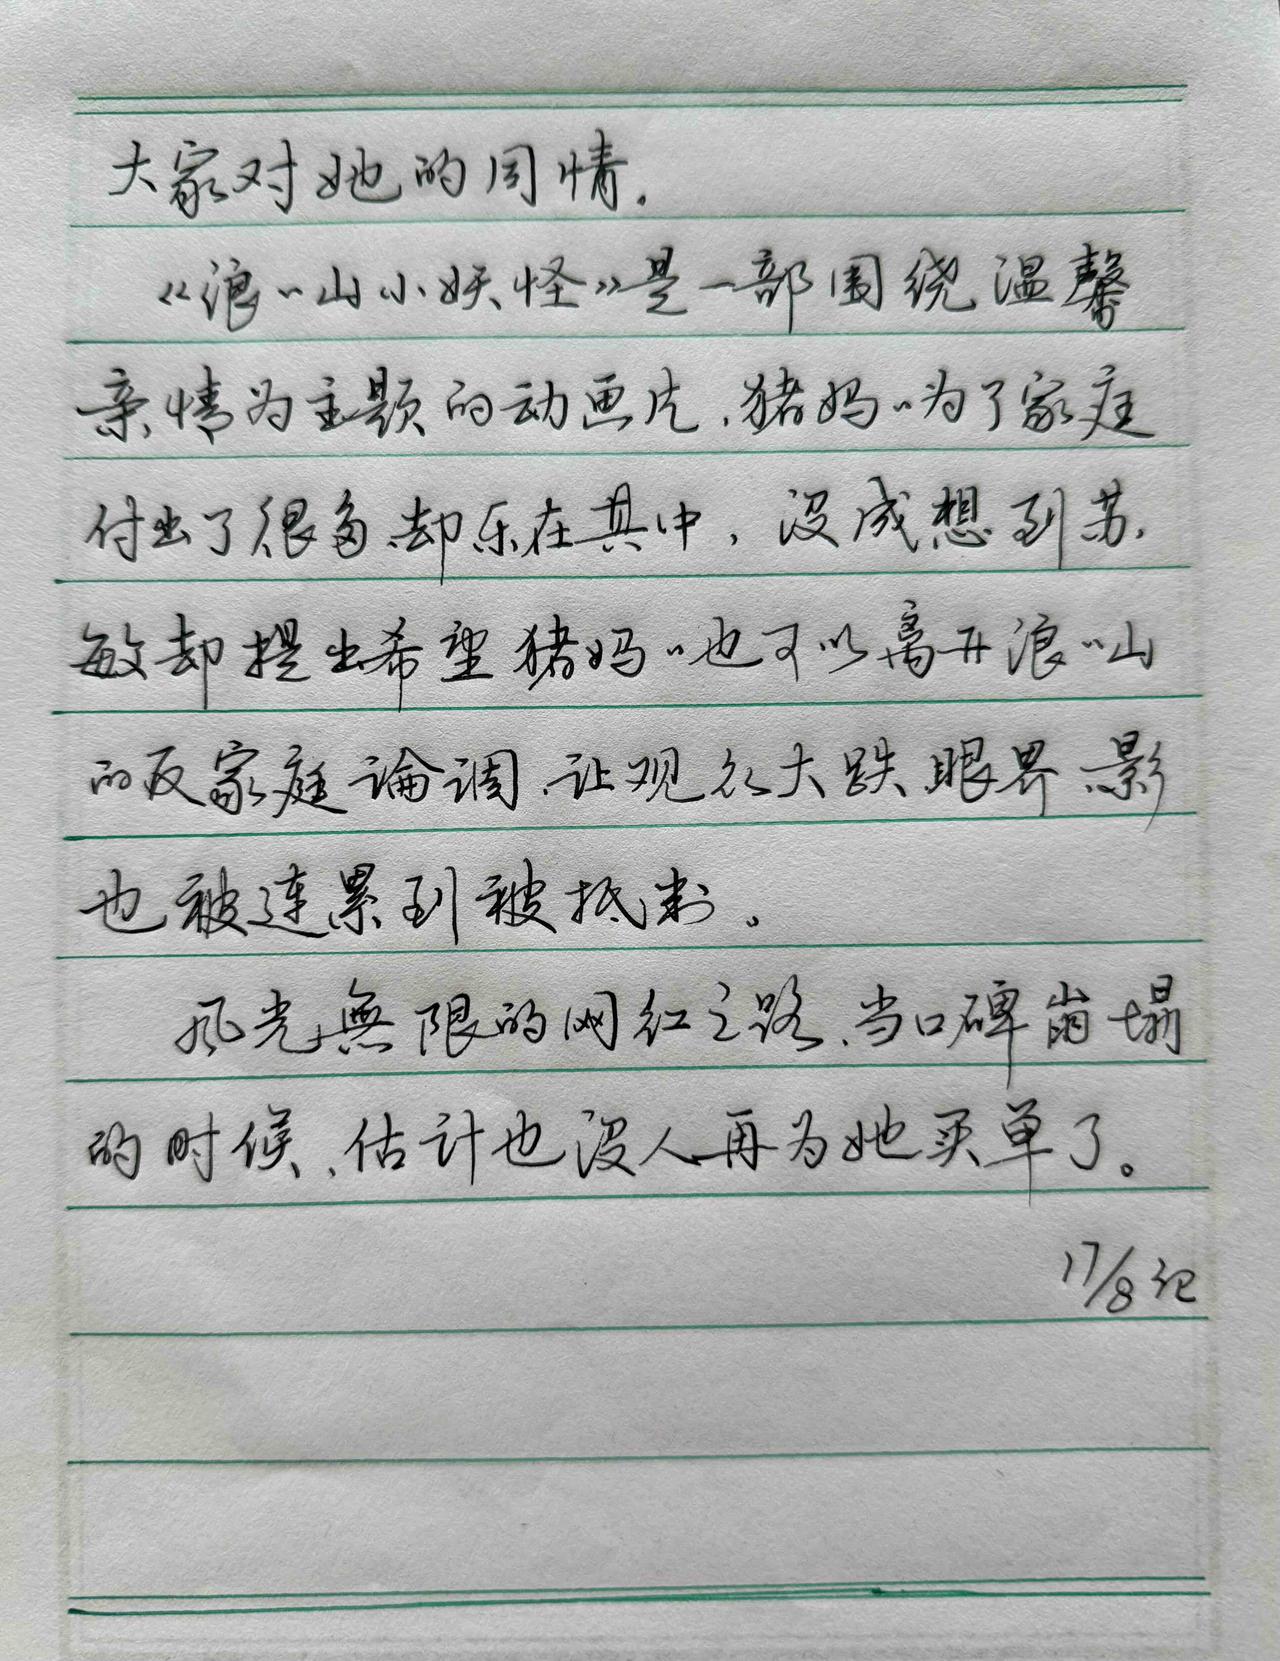 大家对她的同情.
《浪〃山小妖怪》是一部围绕温馨
亲情为主题的动画片,猪妈〃为了家庭
付出了很多,却乐在其中,没成想到苏,
敏却提出希望猪妈〃也可以离开浪〃山
的反家庭論调,让观众大跌眼界,影
也被连累到被抵制。
风光無限的网红之路,当口碑崩塌
的时候,估计也没人再为她买单了。
17/8记